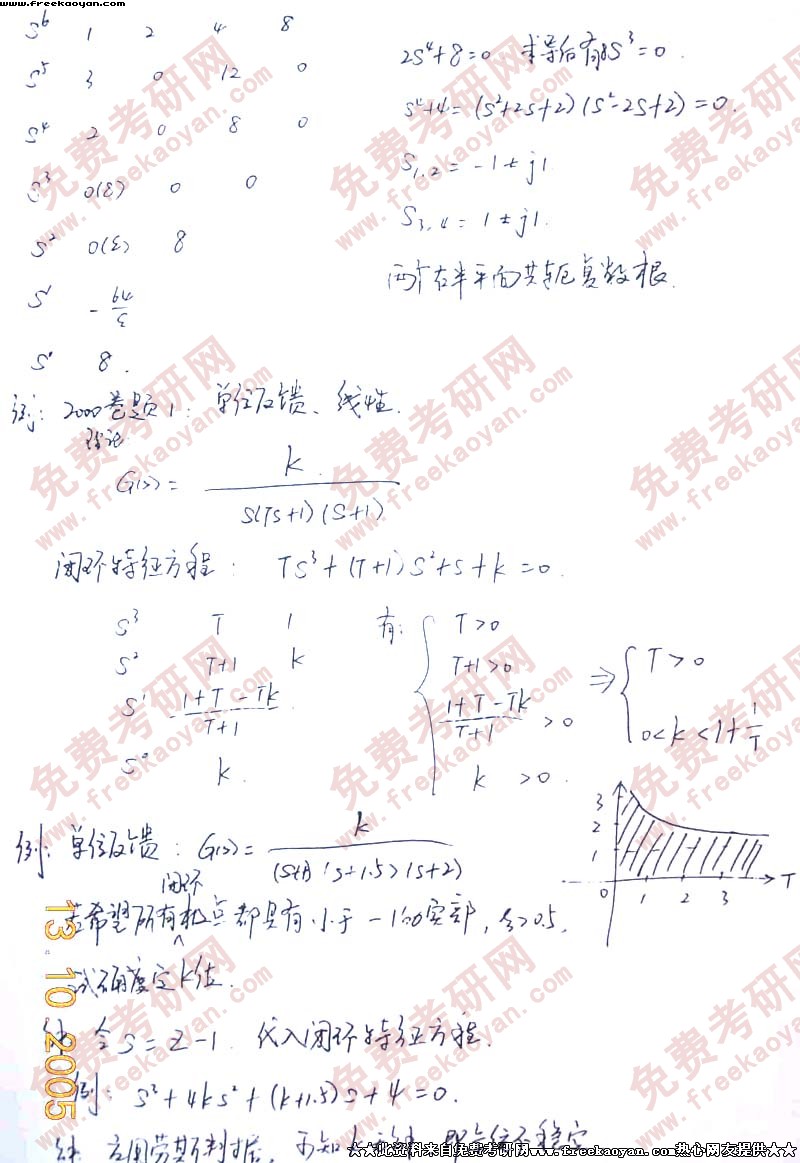 www.freekaoyan.com
S⁶ 1 2 4 8
S⁵ 3 0 12 0
S⁴ 2 0 8 0
S³ 0(ε) 0 0
S² 0(ε) 8
S¹ -64/ε
S⁰ 8.
2S⁴+8=0 求导后有8S³=0.
S⁴+4=(S²+2S+2)(S²-2S+2)=0.
S₁,₂=-1±j1
S₃,₄=1±j1.
两个右半平面共轭复数根.
例: 2000卷题1: 单位反馈、线性.
G(s)= k / S(TS+1)(S+1)
闭环特征方程: TS³+(T+1)S²+S+k=0.
S³ T 1
S² T+1 k
S¹ (1+T-Tk)/(T+1)
S⁰ k.
有: { T>0
T+1>0
(1+T-Tk)/(T+1) >0
k >0.
⇒ { T>0
0<k<1+1/T
3
2
1
0 1 2 3 T
例: 单位反馈: G(s)= k / (S+1)(S+1.5)(S+2)
闭环
若希望所有极点都具有小于-1的实部,
试确定k值.
令S=Z-1. 代入闭环特征方程.
例: S³+4kS²+(k+1.5)S+4=0.
13 10 2005
免费考研网
www.freekaoyan.com
★★此资料来自免费考研网www.freekaoyan.com热心网友提供★★